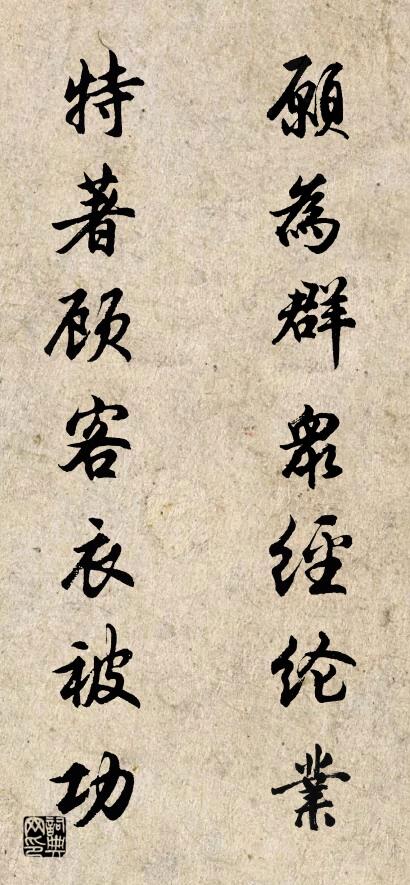 願為群眾經纶業
特著顾客衣被功
詞典网印